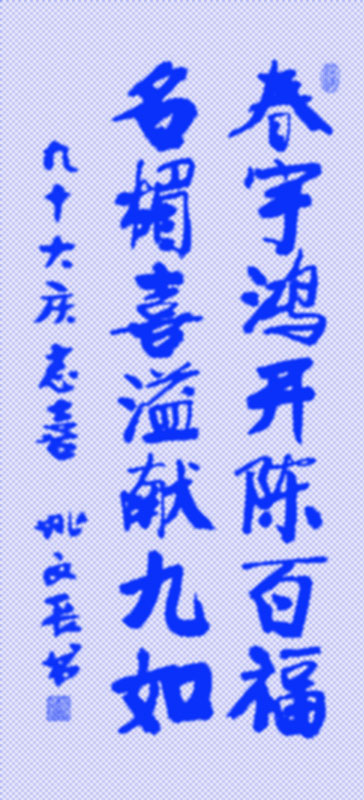 春宇鸿开陈百福
名楣喜溢献九如
八十大庆志喜 姚文长书